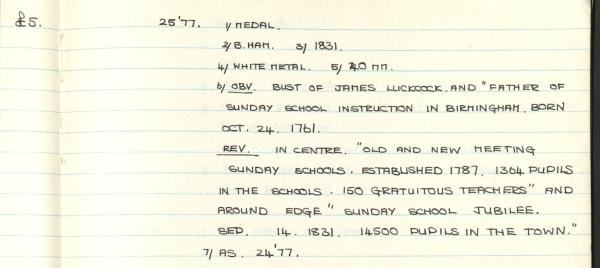 £5. 25'77. 1/ MEDAL.
2/ B.HAM. 3/ 1831.
4/ WHITE METAL. 5/ 40 MM.
6/ OBV. BUST OF JAMES LUCKCOCK. AND "FATHER OF
SUNDAY SCHOOL INSTRUCTION IN BIRMINGHAM. BORN
OCT. 24. 1761.
REV. IN CENTRE. "OLD AND NEW MEETING
SUNDAY SCHOOLS. ESTABLISHED 1787. 1364 PUPILS
IN THE SCHOOLS. 150 GRATUITOUS TEACHERS" AND
AROUND EDGE " SUNDAY SCHOOL JUBILEE.
SEP. 14. 1831. 14500 PUPILS IN THE TOWN."
7/ AS. 24'77.